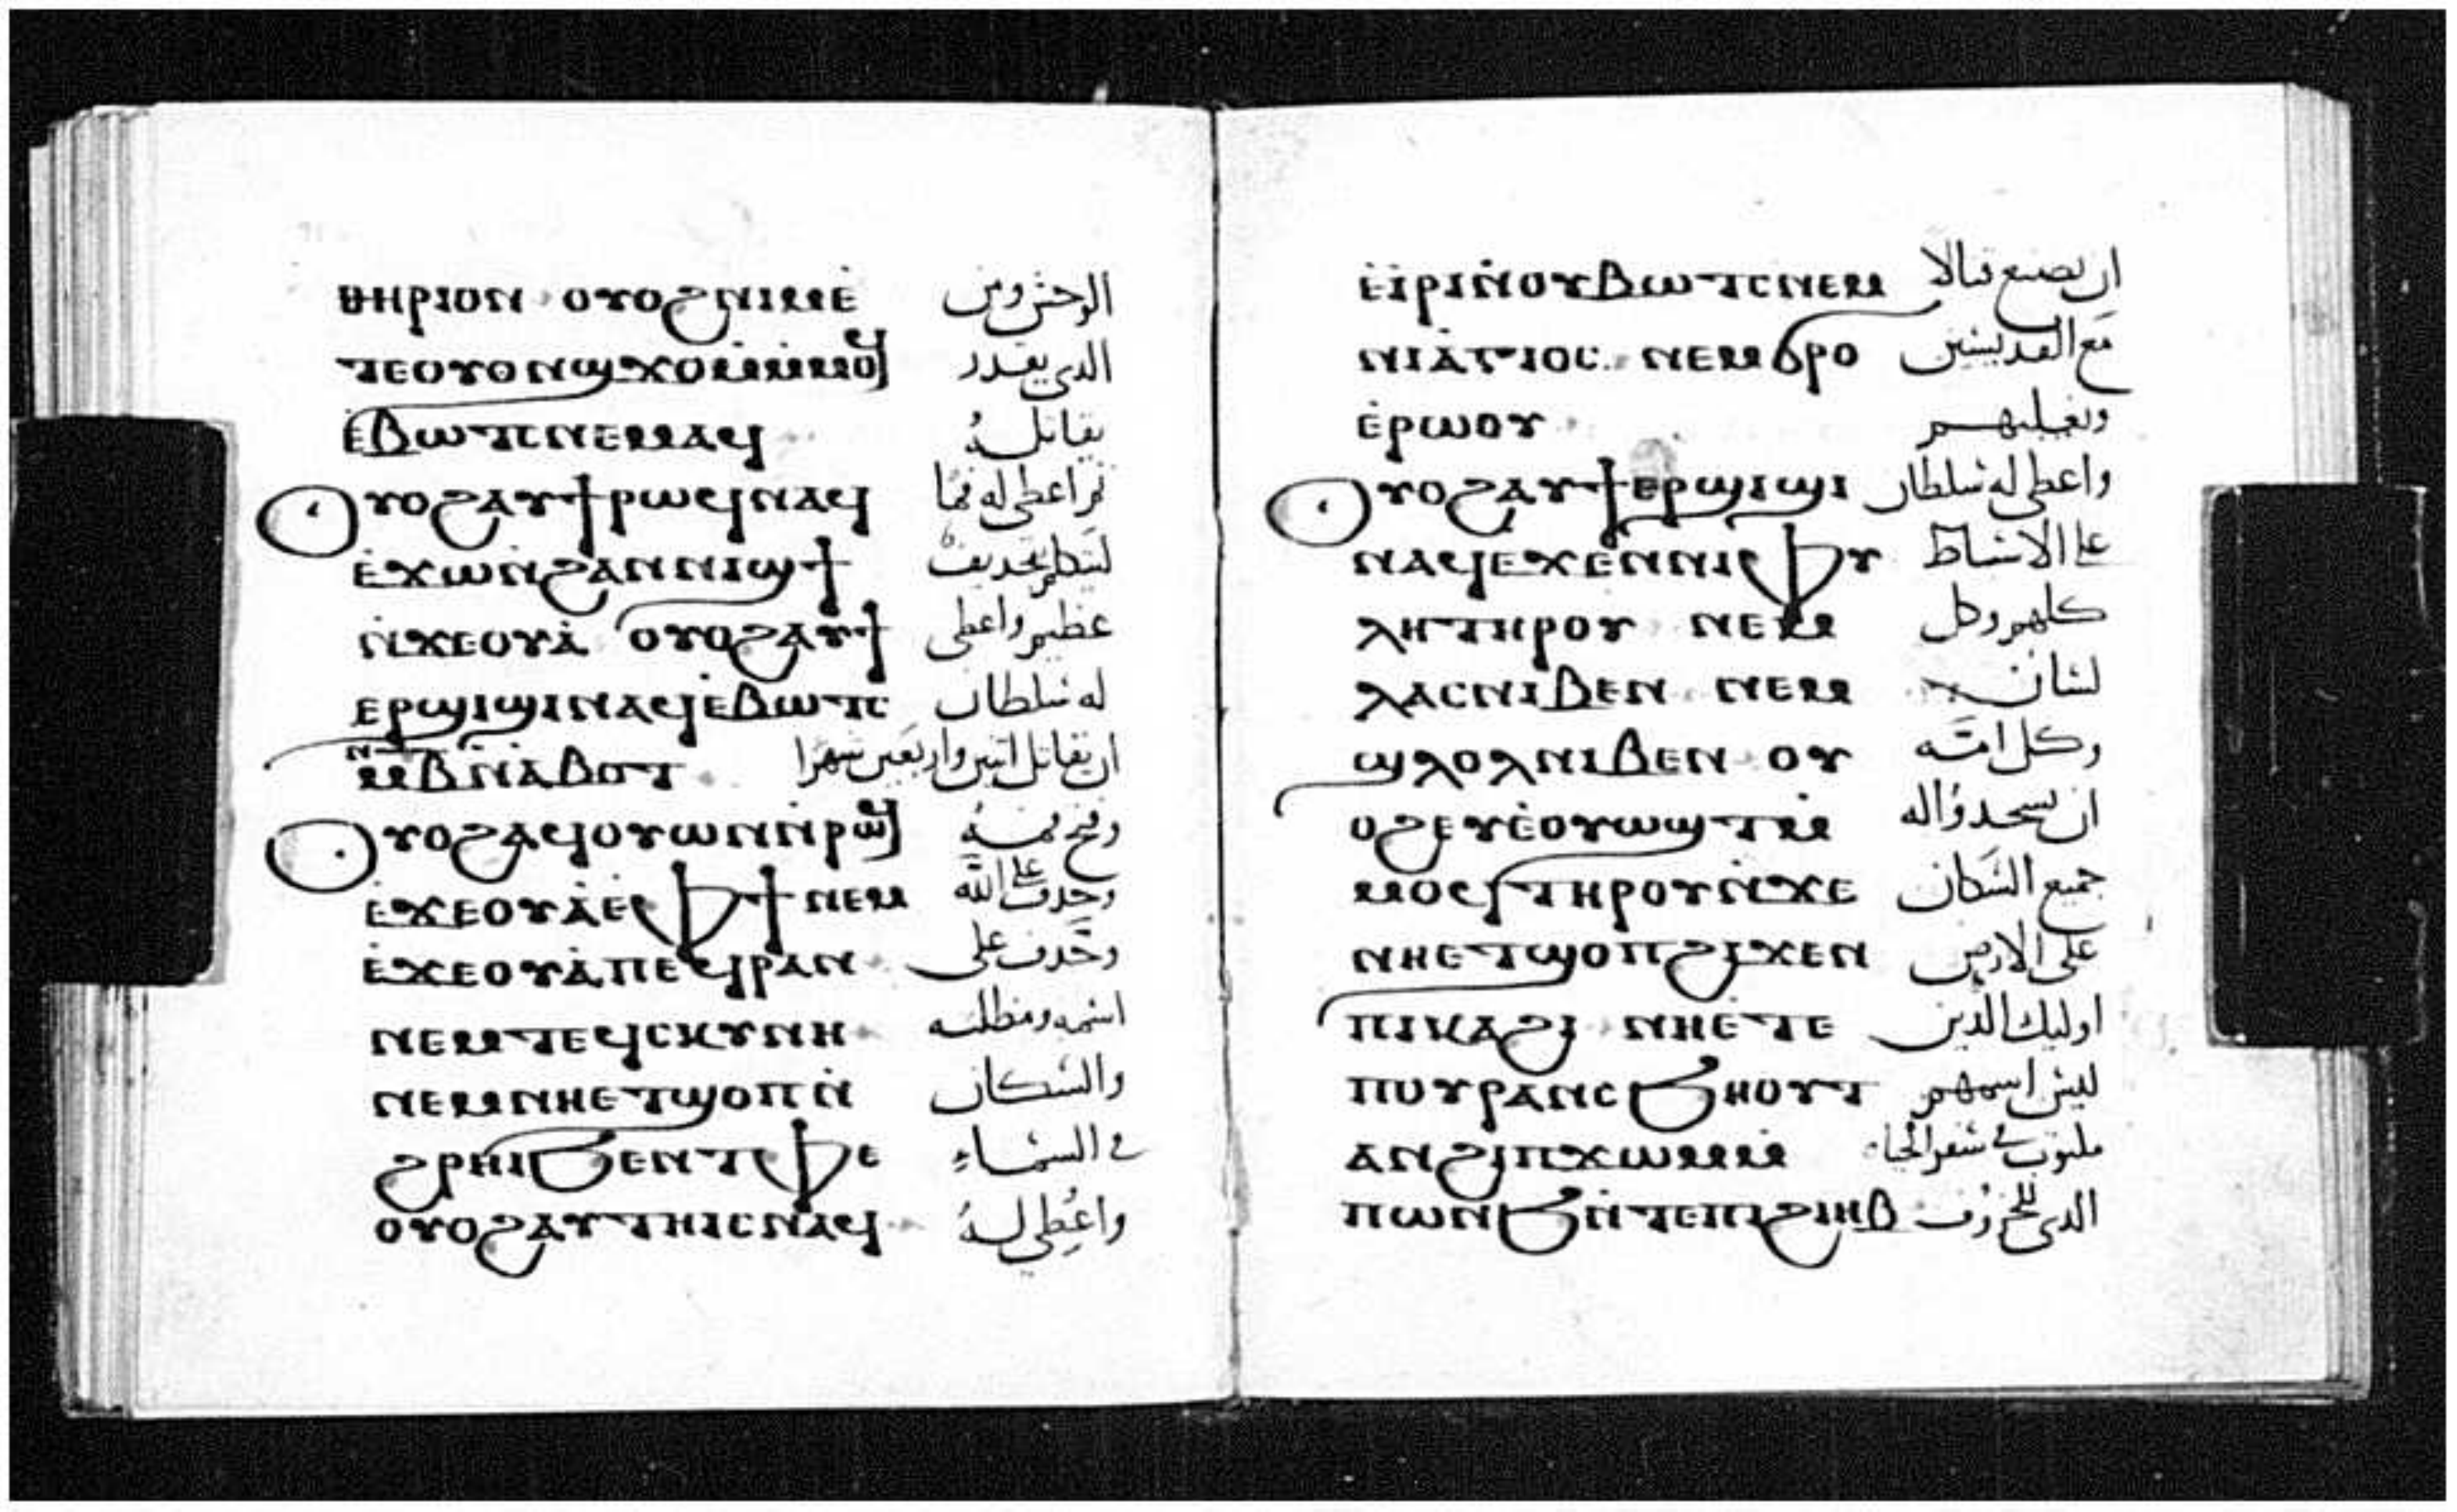 ⲑⲏⲣⲓⲟⲛ ⲟⲩⲟϩ ⲛⲓⲙ ⲉ̀ الوحش ومن
ⲧⲉ ⲟⲩⲟⲛ ϣϫⲟⲙ ⲙ̀ⲙⲟϥ الدى يقدر
ⲉ̀ⲃⲱⲧⲥ ⲛⲉⲙⲁϥ يقاتله
ⲟⲩⲟϩ ⲁⲩϯ ⲣⲱϥ ⲛⲁϥ ثم اعطى له فما
ⲉ̀ϫⲱ ⲛ̀ϩⲁⲛⲛⲓϣϯ ليتكلم بتجديف
ⲛ̀ϫⲉⲟⲩⲁ̀ ⲟⲩⲟϩ ⲁⲩϯ عظيم واعطى
ⲉⲣϣⲓϣⲓ ⲛⲁϥ ⲉ̀ⲃⲱⲧⲥ له سلطان
ⲙ̅ⲃ ⲛ̀ⲁ̀ⲃⲟⲧ ان يقاتل اتنين واربعين شهرا
ⲟⲩⲟϩ ⲁϥⲟⲩⲱⲛ ⲛ̀ⲣⲱϥ وفتح فمه
ⲉ̀ϫⲉⲟⲩⲁ̀ ⲉⲫϯ ⲛⲉⲙ وجدف على الله
ⲉ̀ϫⲉⲟⲩⲁ̀ ⲡⲉϥⲣⲁⲛ وجدف على
ⲛⲉⲙ ⲧⲉϥⲥⲕⲩⲛⲏ اسمه ومظلته
ⲛⲉⲙ ⲛⲏⲉⲧϣⲟⲡ ⲛ̀ والسكان
ϩⲣⲏⲓ ϧⲉⲛ ⲧⲫⲉ في السماء
ⲟⲩⲟϩ ⲁⲩⲧⲏⲓⲥ ⲛⲁϥ واعطي له
ⲉ̀ⲓ̀ⲣⲓ ⲛ̀ⲟⲩⲃⲱⲧⲥ ⲛⲉⲙ ان يصنع قتالا
ⲛⲓⲁ̀ⲅⲓⲟⲥ ⲛⲉⲙ ϭⲣⲟ مع القديسين
ⲉ̀ⲣⲱⲟⲩ ويغلبهم
ⲟⲩⲟϩ ⲁⲩϯ ⲉⲣϣⲓϣⲓ واعطى له سلطان
ⲛⲁϥ ⲉϫⲉⲛ ⲛⲓⲫⲩ على الاسباط
ⲗⲏ ⲧⲏⲣⲟⲩ ⲛⲉⲙ كلهم وكل
ⲗⲁⲥ ⲛⲓⲃⲉⲛ ⲛⲉⲙ لسان
ϣⲗⲟⲗ ⲛⲓⲃⲉⲛ ⲟⲩ وكل امة
ⲟϩ ⲉⲩⲉ̀ⲟⲩⲱϣⲧ ⲙ̀ ان يسجدوا له
ⲙⲟϥ ⲧⲏⲣⲟⲩ ⲛ̀ϫⲉ جميع السكان
ⲛⲏⲉⲧϣⲟⲡ ϩⲓϫⲉⲛ على الارض
ⲡⲓⲕⲁϩⲓ ⲛⲏⲉ̀ⲧⲉ اوليك الدين
ⲡⲟⲩⲣⲁⲛ ⲥϧⲏⲟⲩⲧ ليس اسمهم
ⲁⲛ ϩⲓ ⲡϫⲱⲙ ⲙ̀ مكتوب في سفر الحياه
ⲡⲱⲛϧ ⲛ̀ⲧⲉ ⲡⲓϩⲓⲏⲃ الدى للخروف